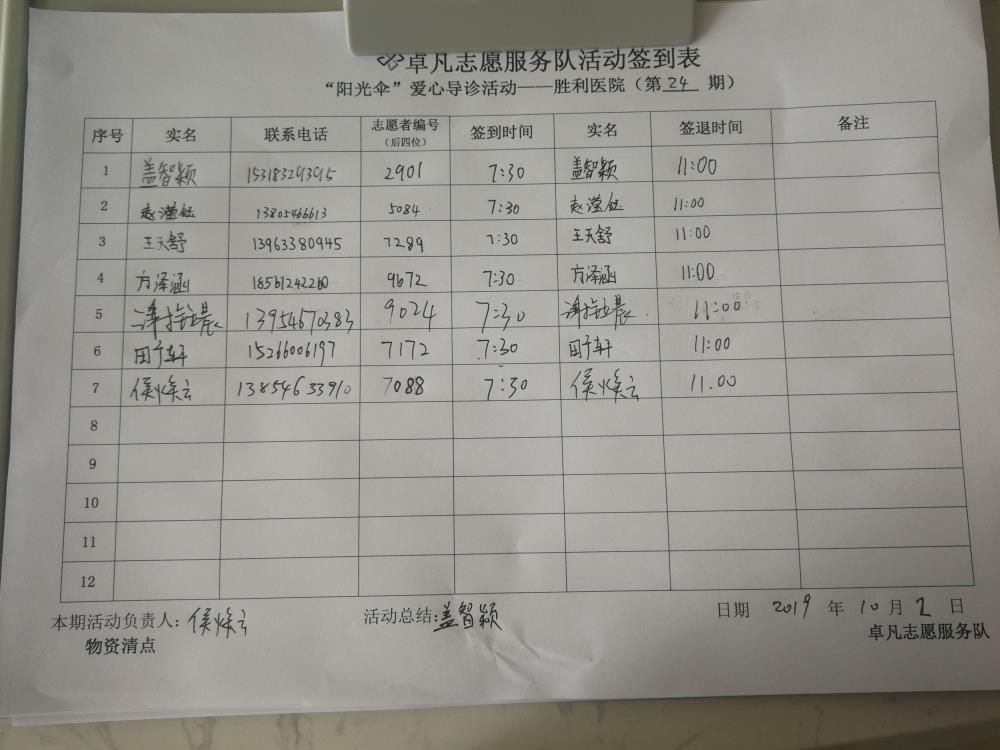 卓凡志愿服务队活动签到表
“阳光伞”爱心导诊活动——胜利医院（第 24 期）
序号 实名 联系电话 志愿者编号（后四位） 签到时间 实名 签退时间 备注
1 盖智颖 15318329395 2901 7:30 盖智颖 11:00
2 赵滢钰 13805466613 5084 7:30 赵滢钰 11:00
3 王天舒 13963380945 7289 7:30 王天舒 11:00
4 方泽涵 18561242260 9672 7:30 方泽涵 11:00
5 13954670383 9024 7:30 11:00
6 田于轩 15266006197 7172 7:30 田于轩 11:00
7 侯焕云 13854633910 7088 7:30 侯焕云 11.00
8
9
10
11
12
本期活动负责人：侯焕云 活动总结：盖智颖 日期 2019 年 10 月 2 日
物资清点 卓凡志愿服务队